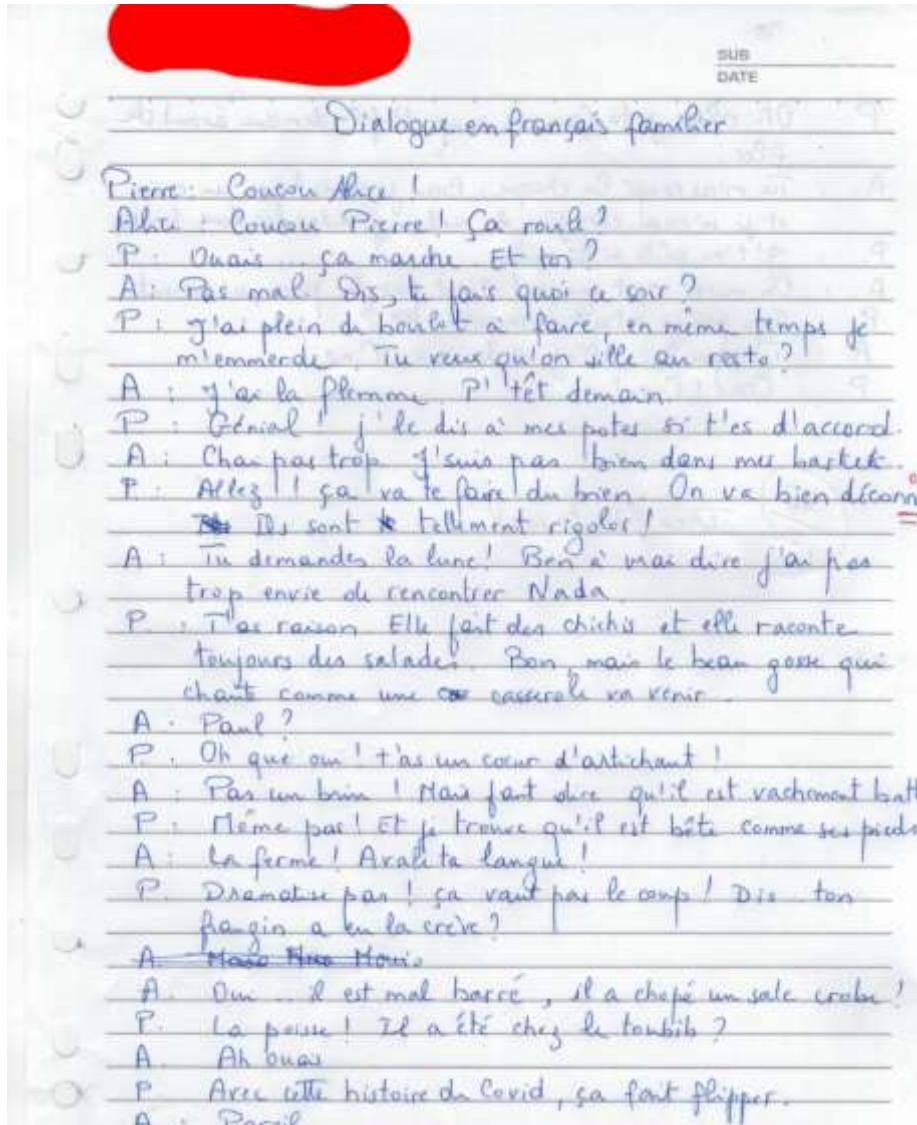 SUB
DATE
Dialogue en français familier
Pierre : Coucou Alice !
Alice : Coucou Pierre ! Ça roule ?
P : Ouais ... ça marche. Et toi ?
A : Pas mal. Dis, tu fais quoi ce soir ?
P : J'ai plein de boulot à faire, en même temps je
m'emmerde. Tu veux qu'on aille au resto ?
A : J'ai la flemme. P'têt demain.
P : Génial ! j'le dis à mes potes si t'es d'accord.
A : Chai pas trop. J'suis pas bien dans mes basket.
P : Allez ! ça va te faire du bien. On va bien déconn
Ils sont tellement rigolos !
A : Tu demandes la lune ! Ben à vrai dire j'ai pas
trop envie de rencontrer Nada.
P : T'as raison. Elle fait des chichis et elle raconte
toujours des salades. Bon, mais le beau gosse qui
chante comme une casserole va venir.
A : Paul ?
P : Oh que oui ! t'as un cœur d'artichaut !
A : Pas un brin ! Mais faut dire qu'il est vachement
P : Même pas ! Et je trouve qu'il est bête comme ses pieds
A : La ferme ! Avale ta langue !
P. Dramatise pas ! ça vaut pas le coup ! Dis ton
frangin a eu la crève ?
A. Oui ... il est mal barré, il a chopé un sale crobe !
P. La poisse ! Il a été chez le toubib ?
A. Ah ouais
P. Avec cette histoire du Covid, ça fout flipper.
A : Pareil